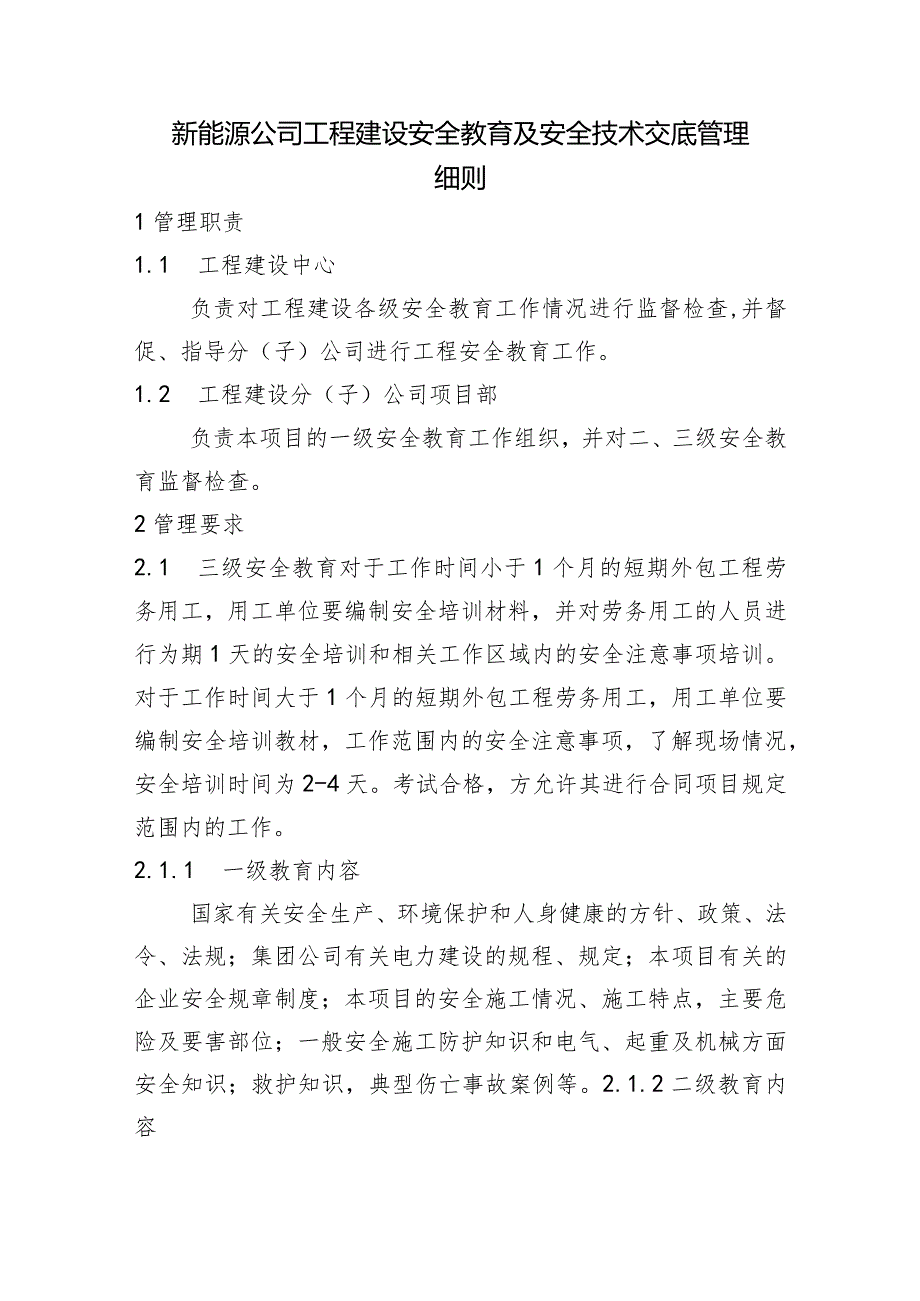 新能源公司工程建设安全教育及安全技术交底管理
细则
1 管理职责
1.1 工程建设中心
负责对工程建设各级安全教育工作情况进行监督检查,并督
促、指导分（子）公司进行工程安全教育工作。
1.2 工程建设分（子）公司项目部
负责本项目的一级安全教育工作组织，并对二、三级安全教
育监督检查。
2 管理要求
2.1 三级安全教育对于工作时间小于 1 个月的短期外包工程劳
务用工，用工单位要编制安全培训材料，并对劳务用工的人员进
行为期 1 天的安全培训和相关工作区域内的安全注意事项培训。
对于工作时间大于 1 个月的短期外包工程劳务用工，用工单位要
编制安全培训教材，工作范围内的安全注意事项，了解现场情况，
安全培训时间为 2-4 天。考试合格，方允许其进行合同项目规定
范围内的工作。
2.1.1 一级教育内容
国家有关安全生产、环境保护和人身健康的方针、政策、法
令、法规；集团公司有关电力建设的规程、规定；本项目有关的
企业安全规章制度；本项目的安全施工情况、施工特点，主要危
险及要害部位；一般安全施工防护知识和电气、起重及机械方面
安全知识；救护知识，典型伤亡事故案例等。2.1.2 二级教育内
容